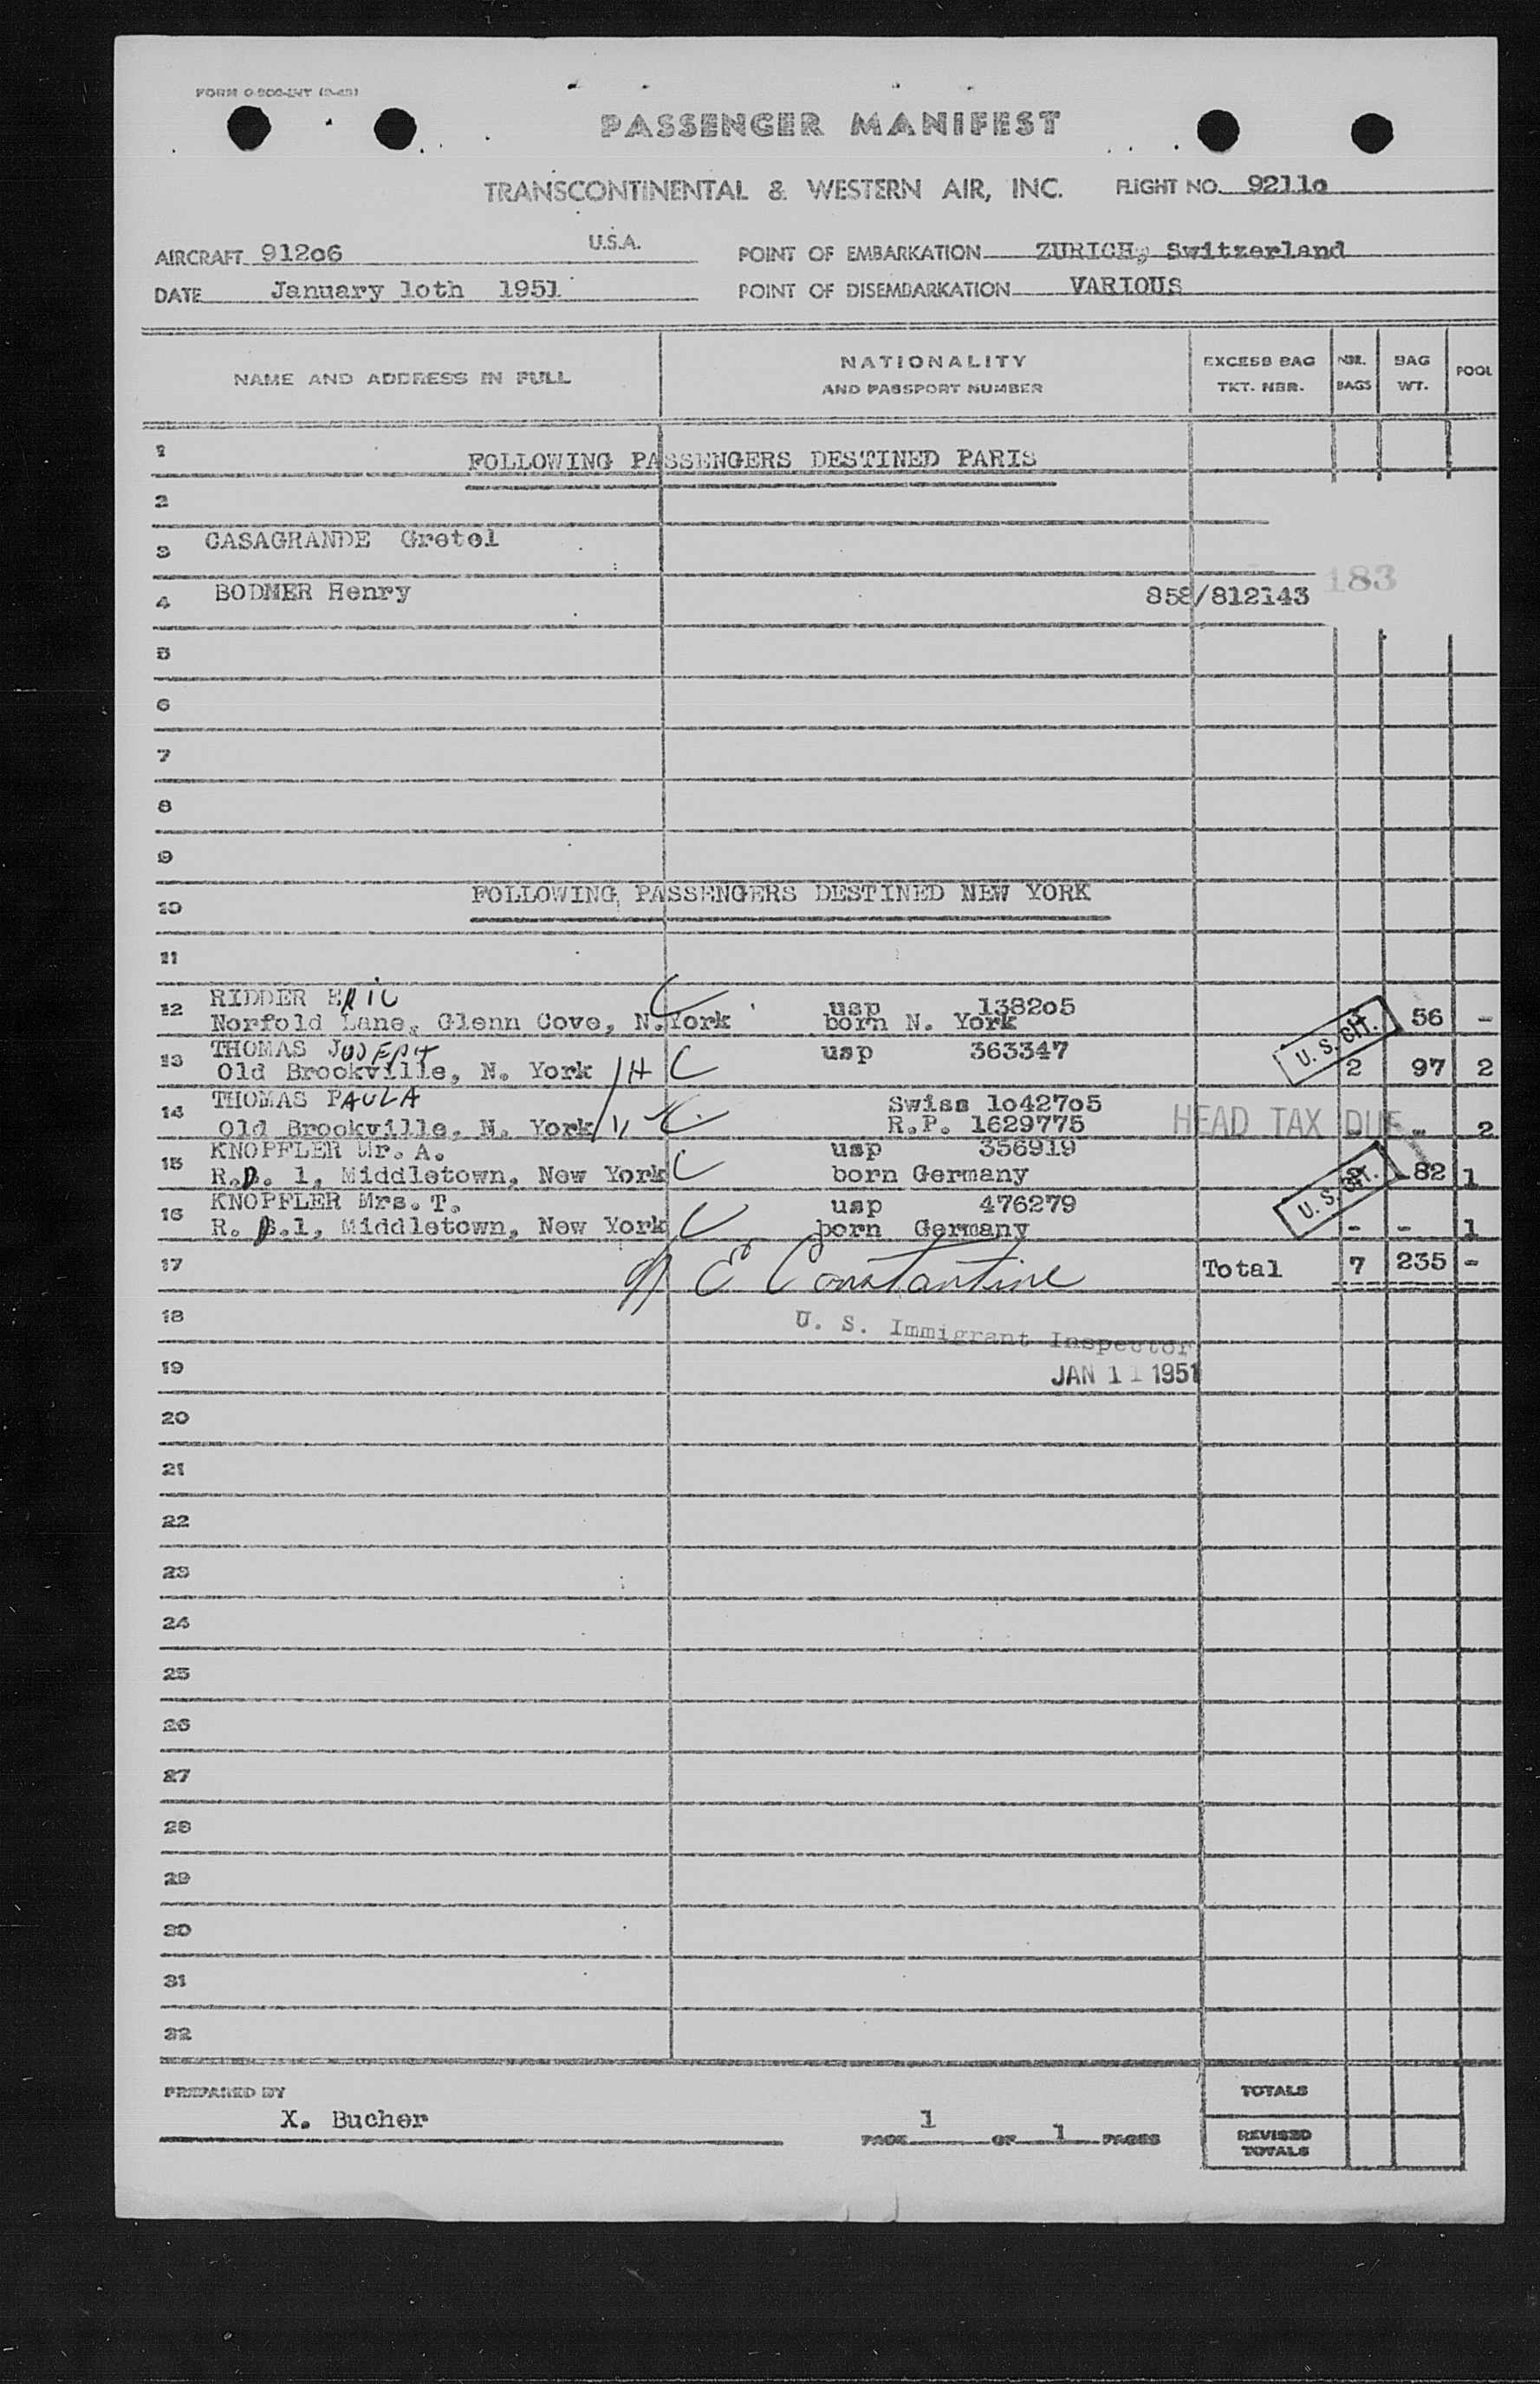 PASSENGER MANIFEST
TRANSCONTINENTAL & WESTERN AIR, INC. FLIGHT NO. 9211o
AIRCRAFT 912o6 U.S.A. POINT OF EMBARKATION ZURICH, Switzerland
DATE January 1oth 1951 POINT OF DISEMBARKATION VARIOUS
NAME AND ADDRESS IN FULL NATIONALITY AND PASSPORT NUMBER EXCESS BAG TKT. NBR. NBR. BAGS BAG WT. POOL
1 FOLLOWING PASSENGERS DESTINED PARIS
2
3 CASAGRANDE Gretel
183
4 BODMER Henry 858/812143
5
6
7
8
9
10 FOLLOWING PASSENGERS DESTINED NEW YORK
11
12 RIDDER ERIC usp 1382o5
Norfold Lane, Glenn Cove, N.York born N. York U.S. CIT. 56 -
13 THOMAS JOSEPH usp 363347
Old Brookville, N. York 2 97 2
14 THOMAS PAULA Swiss 1o427o5
Old Brookville, N. York R.P. 1629775 HEAD TAX DUE - 2
15 KNOPFLER Mr. A. usp 356919
R.D. 1, Middletown, New York born Germany U.S. CIT. 82 1
16 KNOPFLER Mrs. T. usp 476279
R. D.1, Middletown, New York born Germany - - 1
17 E Constantine Total 7 235 -
18 U. S. Immigrant Inspector
19 JAN 11 1951
20
21
22
23
24
25
26
27
28
29
30
31
32
PREPARED BY TOTALS
X. Bucher PAGE 1 OF 1 PAGES REVISED TOTALS